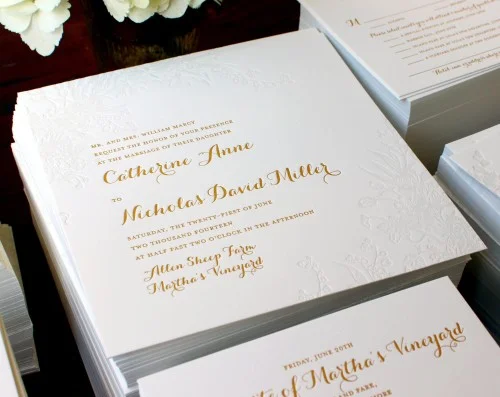 MR. AND MRS. WILLIAM MARCY
REQUEST THE HONOR OF YOUR PRESENCE
AT THE MARRIAGE OF THEIR DAUGHTER
Catherine Anne
TO
Nicholas David Miller
SATURDAY, THE TWENTY-FIRST OF JUNE
TWO THOUSAND FOURTEEN
AT HALF PAST TWO O'CLOCK IN THE AFTERNOON
Allen Sheep Farm
Martha's Vineyard
FRIDAY, JUNE 20TH
of Martha's Vineyard
PARK,